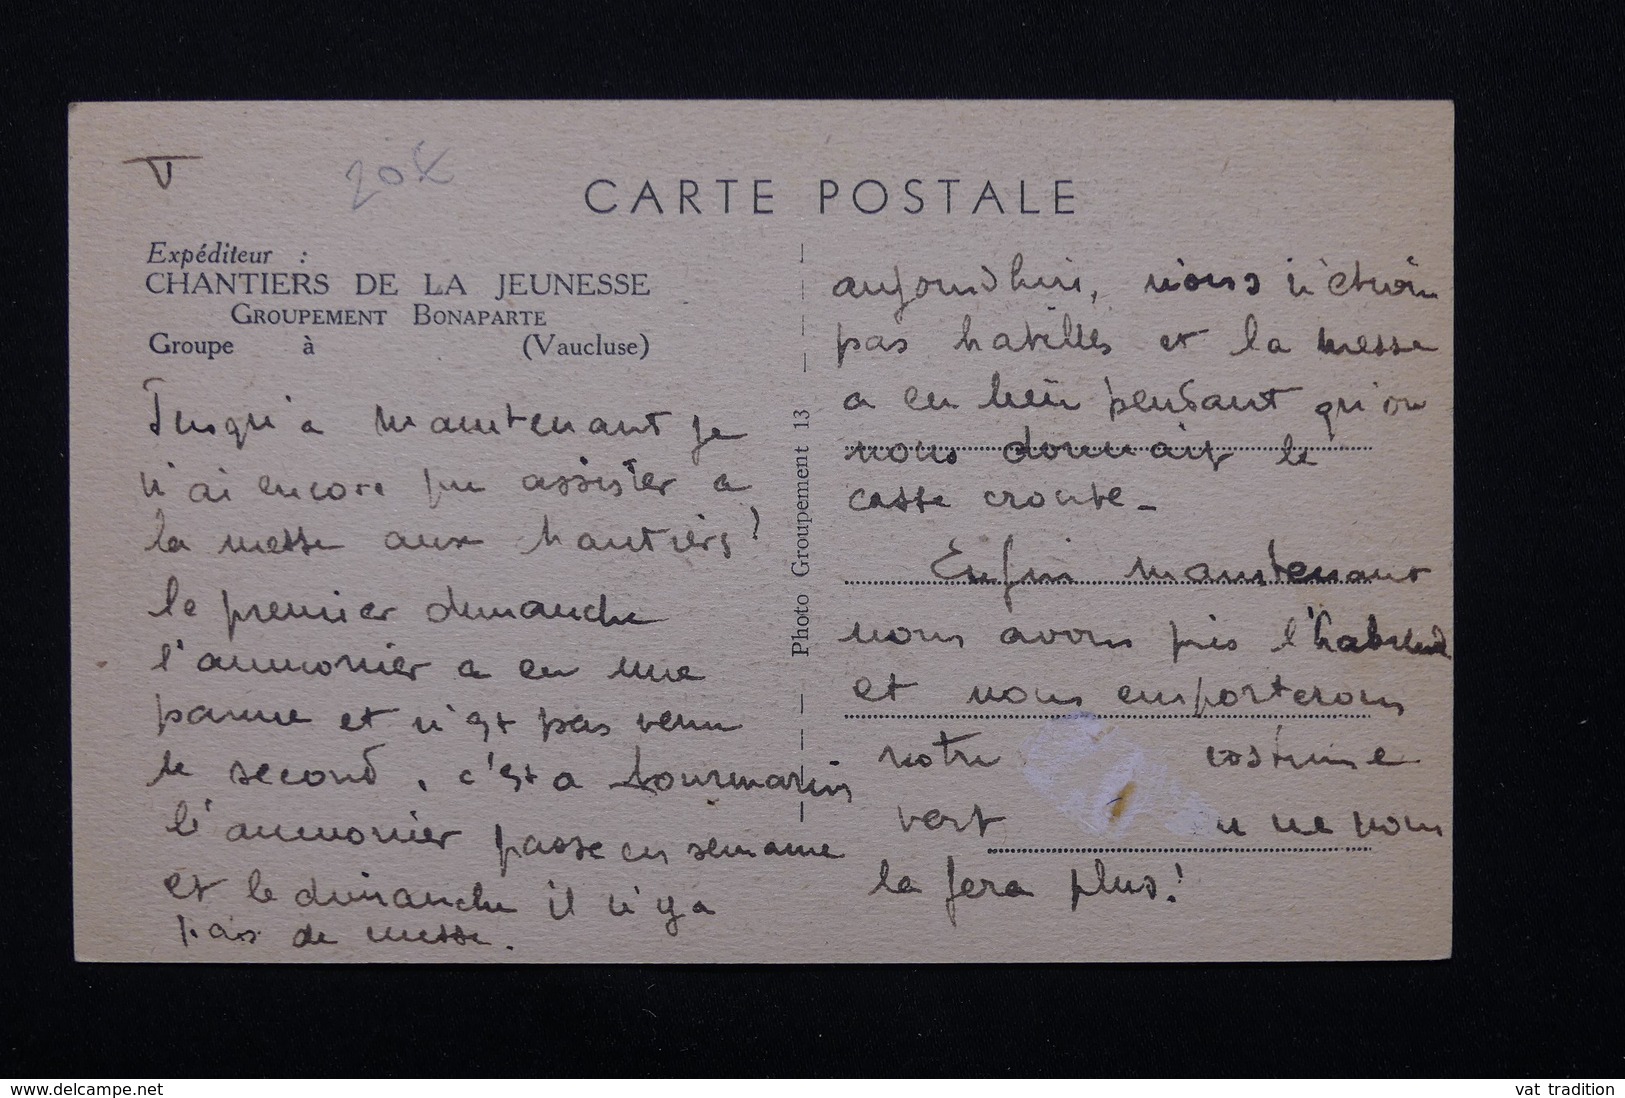 V
20€
CARTE POSTALE
Expéditeur :
CHANTIERS DE LA JEUNESSE
GROUPEMENT BONAPARTE
Groupe à (Vaucluse)
Jusqu'a maintenant je
n'ai encore pu assister a
la messe aux chantiers!
le premier dimanche
l'aumonier a eu une
panne et n'est pas venu
le second, c'est a Lourmarin
l'aumonier passe en semaine
et le dimanche il n'y a
pas de messe.
Photo Groupement 13
aujourd'hui, nous n'étions
pas habillés et la messe
a eu lieu pendant qu'on
nous donnait le
casse croute -
Enfin maintenant
nous avons pris l'habitude
et nous emporterons
notre costume
vert ne nous
la fera plus!
www.delcampe.net
vat tradition